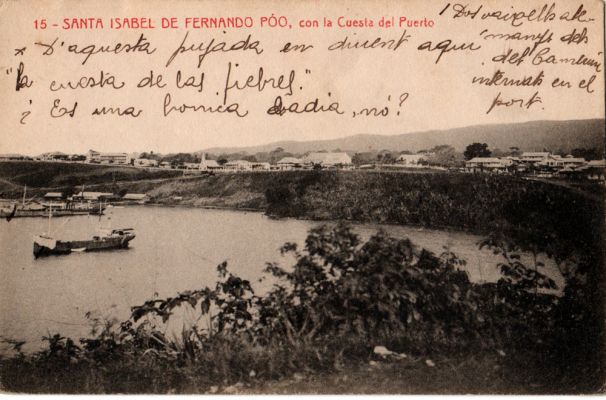 15 - SANTA ISABEL DE FERNANDO PÓO, con la Cuesta del Puerto
x D'aquesta pujada en diuent aquí
"la cuesta de las fiebres."
¿ Es una bonica badia, nó?
1 Dos vaixells ale-
manys dels
del Camerún
internats en el
port.